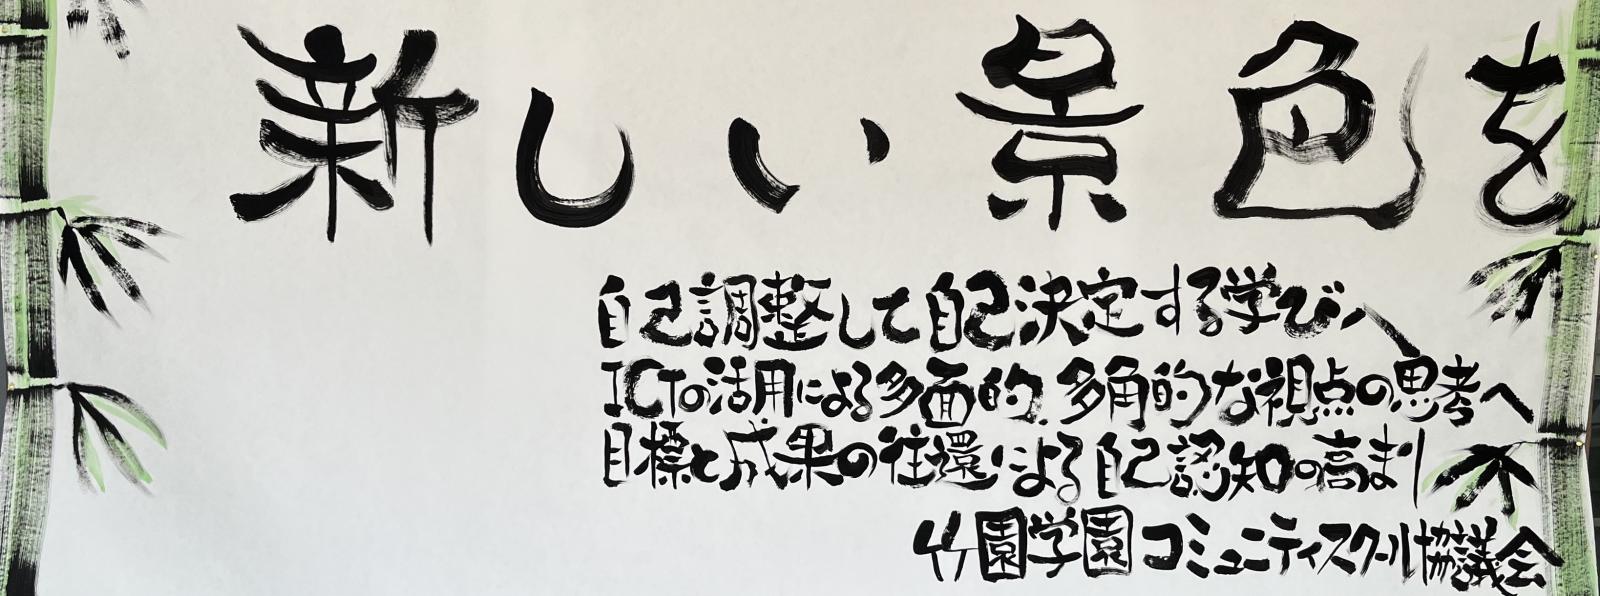 新しい景色を
自己調整して自己決定する学びへ
ICTの活用による多面的、多角的な視点の思考へ
目標と成果の往還による自己認知の高まり
竹園学園コミュニティスクール協議会